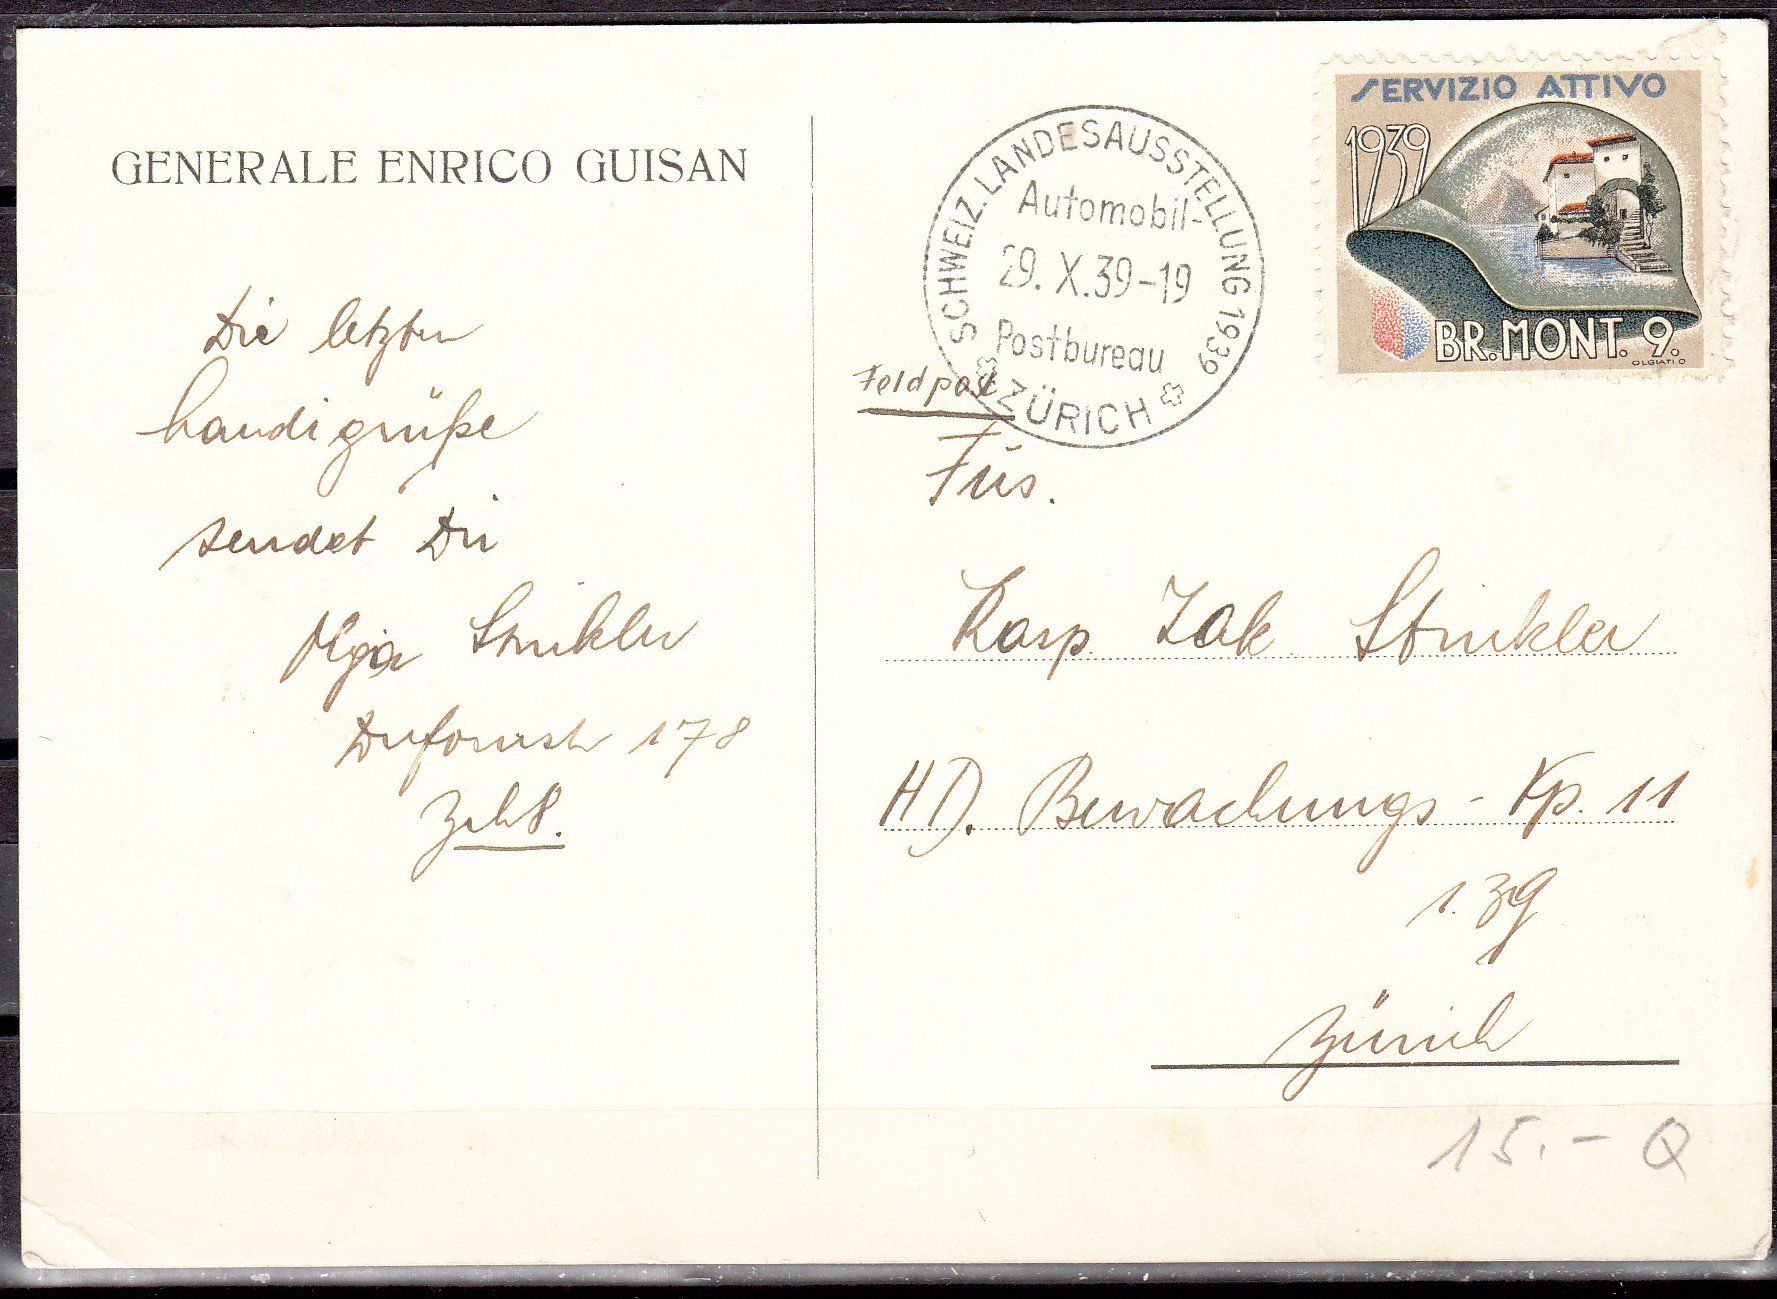 GENERALE ENRICO GUISAN
Die letzten
handigrüße
sendet Dir
Olga Strikler
Dufourstr 178
Zch 8.
SCHWEIZ. LANDESAUSSTELLUNG 1939
Automobil-
29. X. 39-19
Postbureau
ZÜRICH
SERVIZIO ATTIVO
1939
BR. MONT. 9.
OLGIATI O
Feldpost
Füs.
Kasp. Jak Strikler
HD. Bewachungs - Kp. 11
1. Zg
Zürich
15.- Q